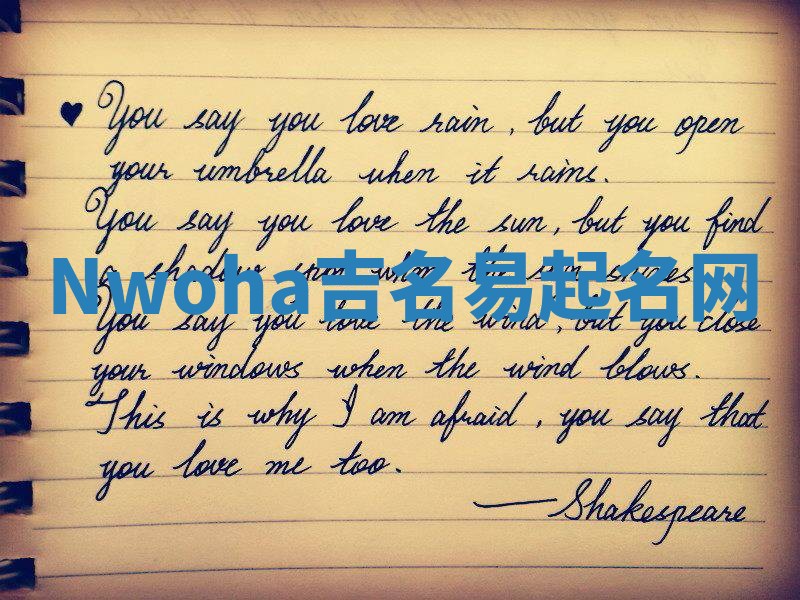 ♥ You say you love rain, but you open
your umbrella when it rains.
You say you love the sun, but you find
a shadow spot when the sun shines.
Nwoha吉名易起名网
You say you love the wind, but you close
your windows when the wind blows.
This is why I am afraid, you say that
you love me too.
—Shakespeare